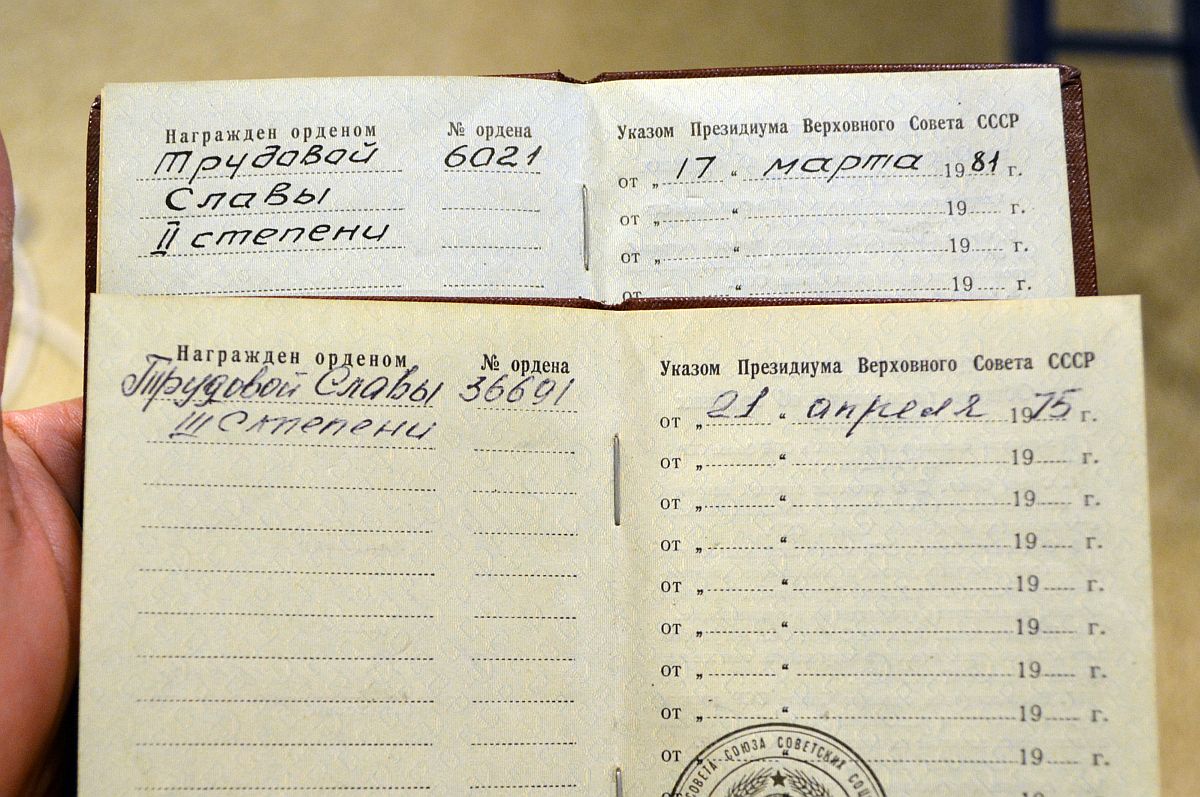 Награжден орденом № ордена Указом Президиума Верховного Совета СССР
Трудовой 6021 от „ 17 “ марта 1981 г.
Славы от „ “ 19 г.
II степени от „ “ 19 г.
от „ “ 19 г.
Награжден орденом № ордена Указом Президиума Верховного Совета СССР
Трудовой Славы 36691 от „ 21 “ апреля 1975 г.
III Степени от „ “ 19 г.
от „ “ 19 г.
от „ “ 19 г.
от „ “ 19 г.
от „ “ 19 г.
от „ “ 19 г.
от „ “ 19 г.
от „ “ 19 г.
СОВЕТА СОЮЗА СОВЕТСКИХ